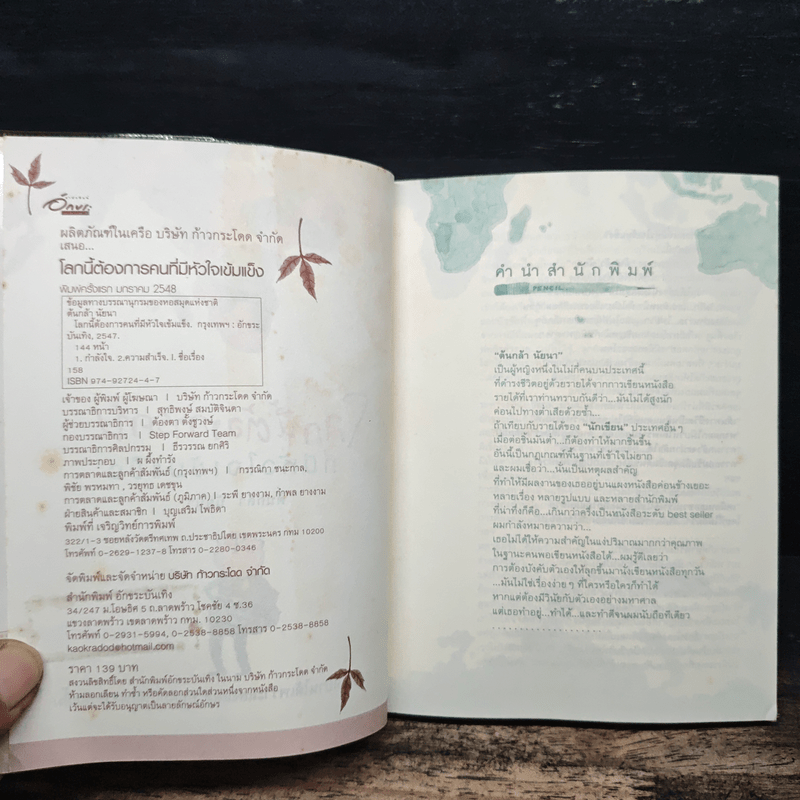 อักษร
ผลิตภัณฑ์ในเครือ บริษัท ก้าวกระโดด จำกัด
เสนอ...
โลกนี้ต้องการคนที่มีหัวใจเข้มแข็ง
พิมพ์ครั้งแรก มกราคม 2548
ข้อมูลทางบรรณานุกรมของหอสมุดแห่งชาติ
ต้นกล้า นัยนา
โลกนี้ต้องการคนที่มีหัวใจเข้มแข็ง. กรุงเทพฯ : อักขระ
บันเทิง, 2547.
144 หน้า
1. กำลังใจ. 2.ความสำเร็จ. I. ชื่อเรื่อง
158
ISBN 974-92724-4-7
เจ้าของ ผู้พิมพ์ ผู้โฆษณา | บริษัท ก้าวกระโดด จำกัด
บรรณาธิการบริหาร | สุทธิพงษ์ สมบัติจินดา
ผู้ช่วยบรรณาธิการ | ต้องตา ตั้งชูวงษ์
กองบรรณาธิการ | Step Forward Team
บรรณาธิการศิลปกรรม | ธีรวรรณ ยกศิริ
ภาพประกอบ | ผ ผึ้งทำรัง
การตลาดและลูกค้าสัมพันธ์ (กรุงเทพฯ) | กรรณิกา ชนะกาล,
พิชัย พรหมทา , วรยุทธ เดชขุน
การตลาดและลูกค้าสัมพันธ์ (ภูมิภาค) | ระพี ยางงาม, กำพล ยางงาม
ฝ่ายสินค้าและสมาชิก | บุญเสริม โพธิดา
พิมพ์ที่ เจริญวิทย์การพิมพ์
322/1-3 ซอยหลังวัดตรีทศเทพ ถ.ประชาธิปไตย เขตพระนคร กทม 10200
โทรศัพท์ 0-2629-1237-8 โทรสาร 0-2280-0346
จัดพิมพ์และจัดจำหน่าย บริษัท ก้าวกระโดด จำกัด
สำนักพิมพ์ อักขระบันเทิง
34/247 ม.โอษธิศ 5 ถ.ลาดพร้าว โชคชัย 4 ซ.36
แขวงลาดพร้าว เขตลาดพร้าว กทม. 10230
โทรศัพท์ 0-2931-5994, 0-2538-8858 โทรสาร 0-2538-8858
kaokradod@hotmail.com
ราคา 139 บาท
สงวนลิขสิทธิ์โดย สำนักพิมพ์อักขระบันเทิง ในนาม บริษัท ก้าวกระโดด จำกัด
ห้ามลอกเลียน ทำซ้ำ หรือคัดลอกส่วนใดส่วนหนึ่งจากหนังสือ
เว้นแต่จะได้รับอนุญาตเป็นลายลักษณ์อักษร
คำนำสำนักพิมพ์
PENCIL
"ต้นกล้า นัยนา"
เป็นผู้หญิงหนึ่งในไม่กี่คนบนประเทศนี้
ที่ดำรงชีวิตอยู่ด้วยรายได้จากการเขียนหนังสือ
รายได้ที่เราท่านทราบกันดีว่า...มันไม่ได้สูงนัก
ค่อนไปทางต่ำเสียด้วยซ้ำ...
ถ้าเทียบกับรายได้ของ "นักเขียน" ประเทศอื่นๆ
เมื่อต่อชิ้นมันต่ำ...ก็ต้องทำให้มากชิ้นขึ้น
อันนี้เป็นกฏเกณฑ์พื้นฐานที่เข้าใจไม่ยาก
และผมเชื่อว่า...นั่นเป็นเหตุผลสำคัญ
ที่ทำให้มีผลงานของเธออยู่บนแผงหนังสือค่อนข้างเยอะ
หลายเรื่อง หลายรูปแบบ และหลายสำนักพิมพ์
ที่น่าทึ่งก็คือ...เกินกว่าครึ่งเป็นหนังสือระดับ best seller
ผมกำลังหมายความว่า...
เธอไม่ได้ให้ความสำคัญในแง่ปริมาณมากกว่าคุณภาพ
ในฐานะคนพอเขียนหนังสือได้...ผมรู้ดีเลยว่า
การต้องบังคับตัวเองให้ลุกขึ้นมานั่งเขียนหนังสือทุกวัน
...มันไม่ใช่เรื่องง่าย ๆ ที่ใครหรือใครก็ทำได้
หากแต่ต้องมีวินัยกับตัวเองอย่างมหาศาล
แต่เธอทำอยู่...ทำได้...และทำดีจนผมนับถือทีเดียว
....................